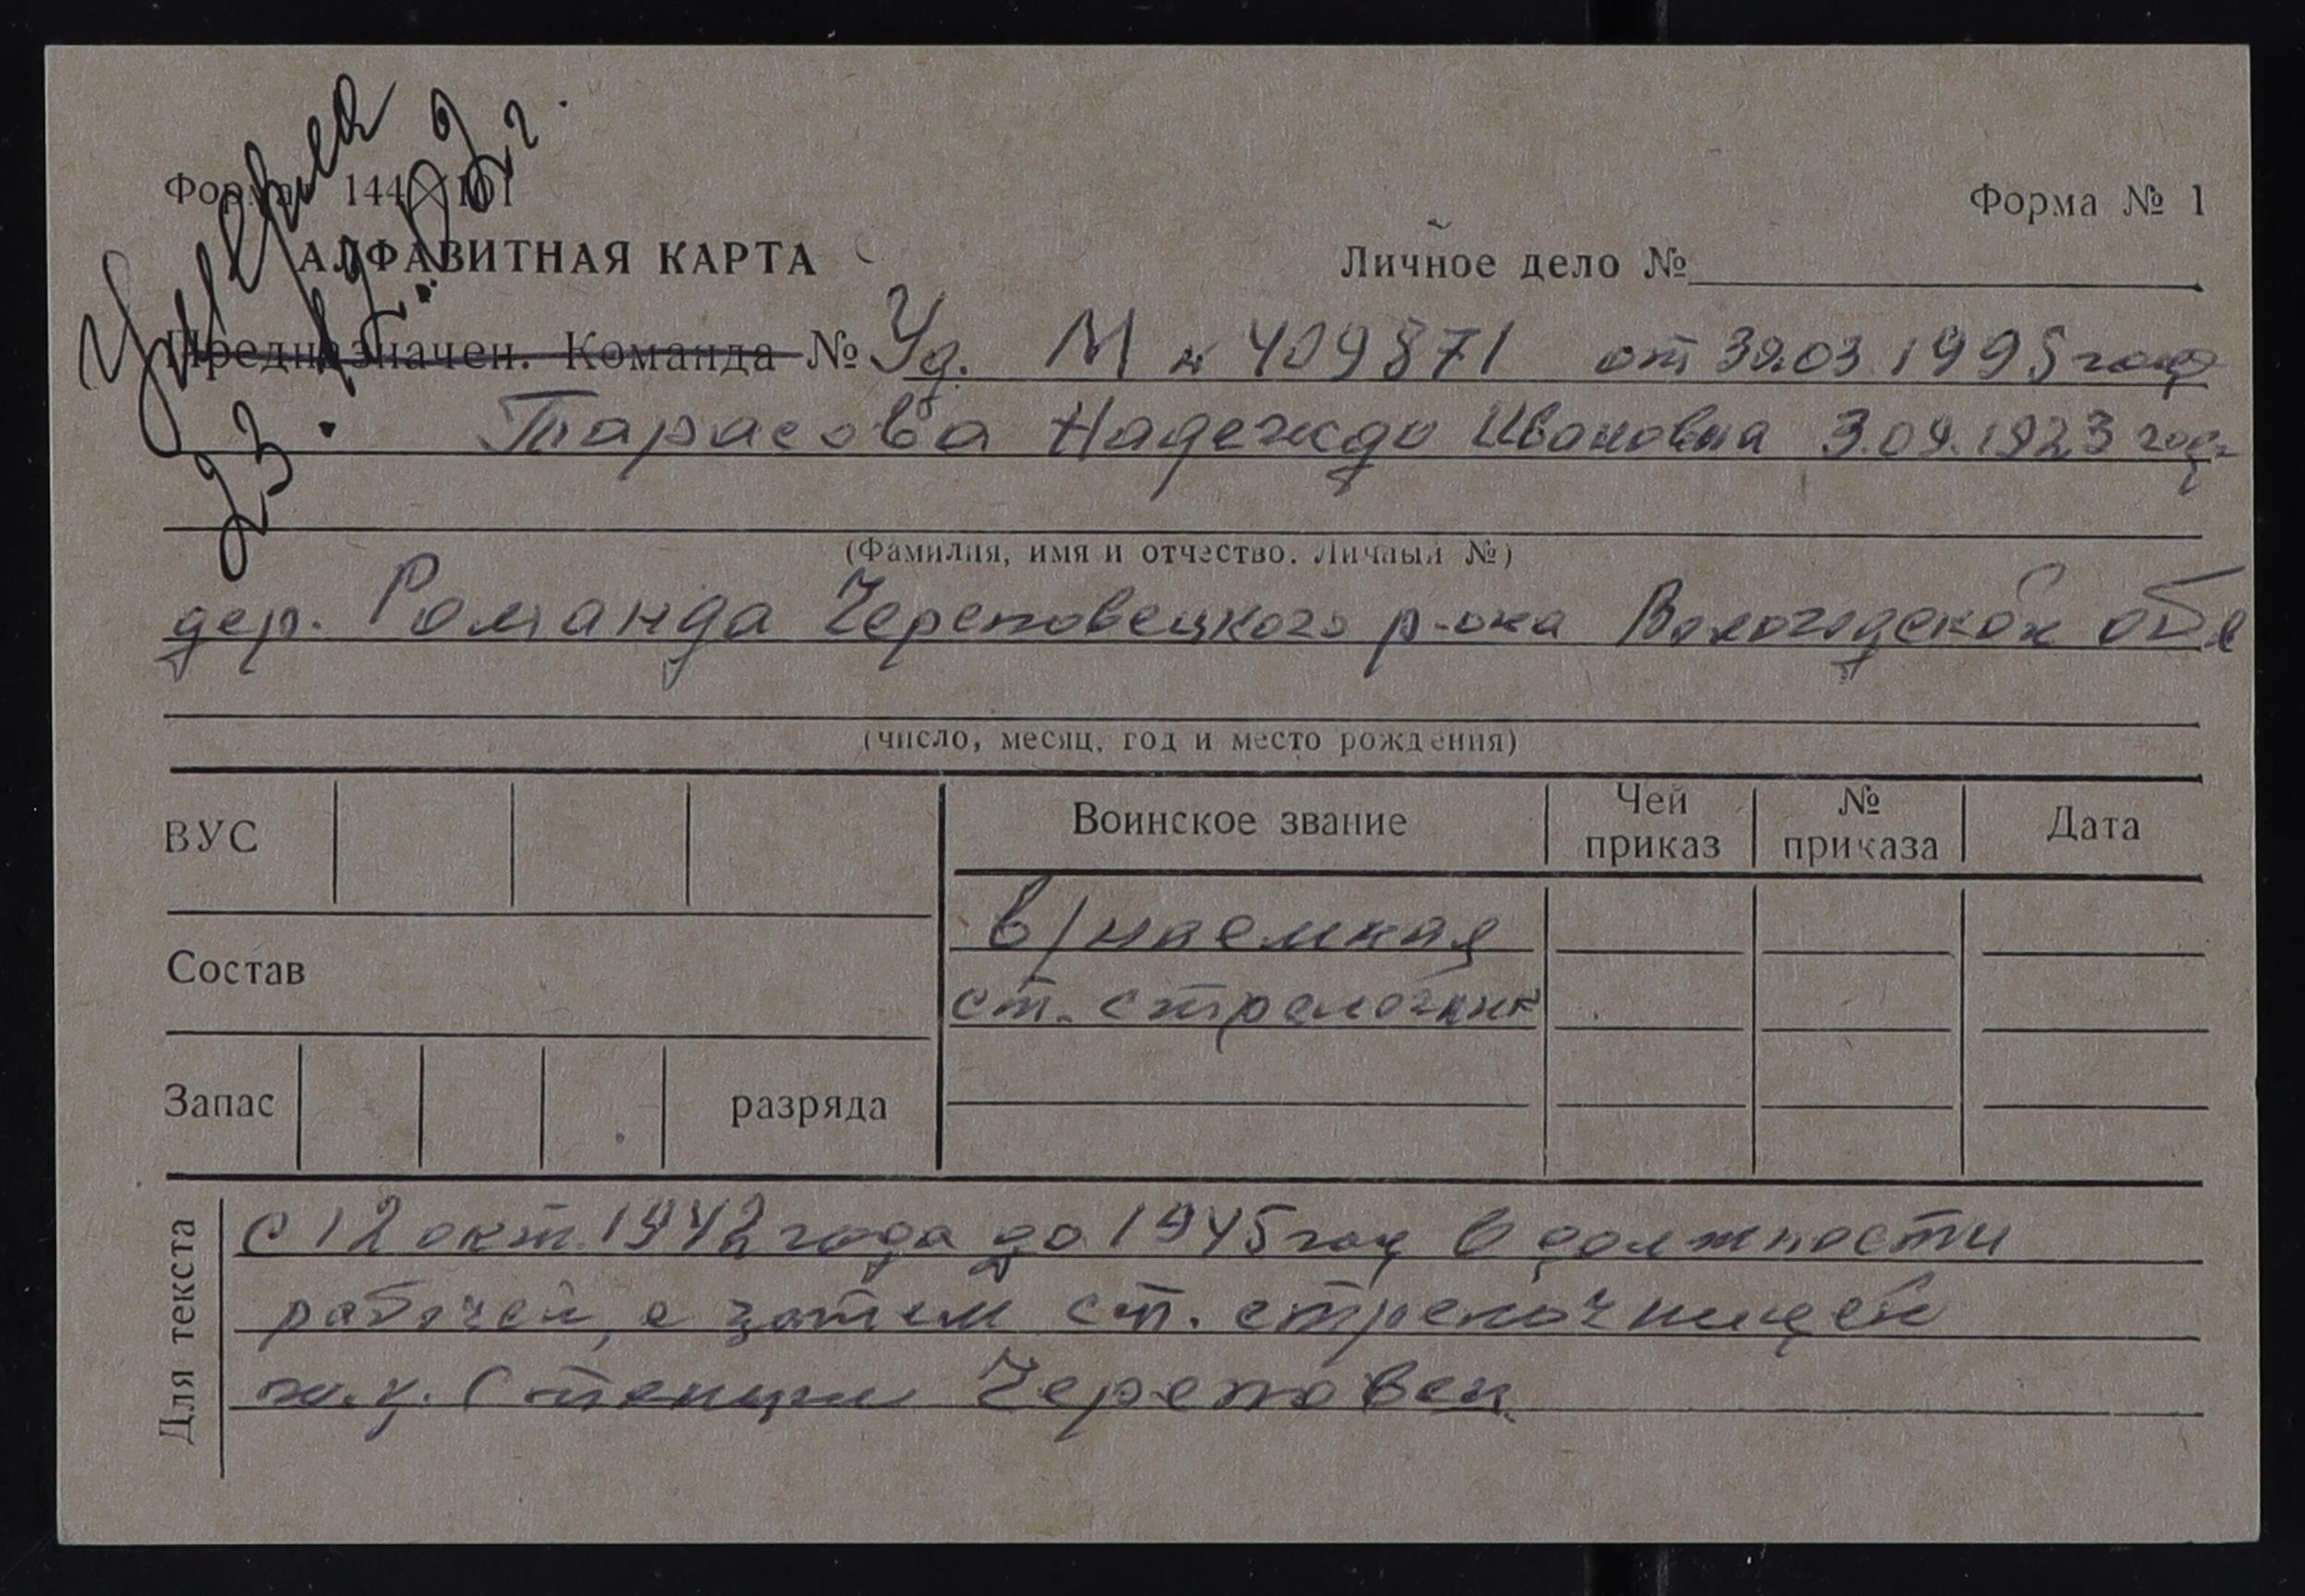 Умерла
23.12.
Формат 144×101
Форма № 1
АЛФАВИТНАЯ КАРТА
Личное дело №
Предназначен. Команда № Уд. М № 409871 от 30.03.1995 года
Тарасова Надежда Ивановна 3.09.1923 года
(Фамилия, имя и отчество. Личный №)
дер. Романда Череповецкого р-она Вологодской обл
(число, месяц, год и место рождения)
ВУС
Воинское звание
Чей приказ
№ приказа
Дата
в/наемная
Состав
ст. стрелочник
Запас
разряда
Для текста
с 12 окт. 1942 года до 1945 год в должности
рабочей, а затем ст. стрелочницей
ж.д. Станции Череповец